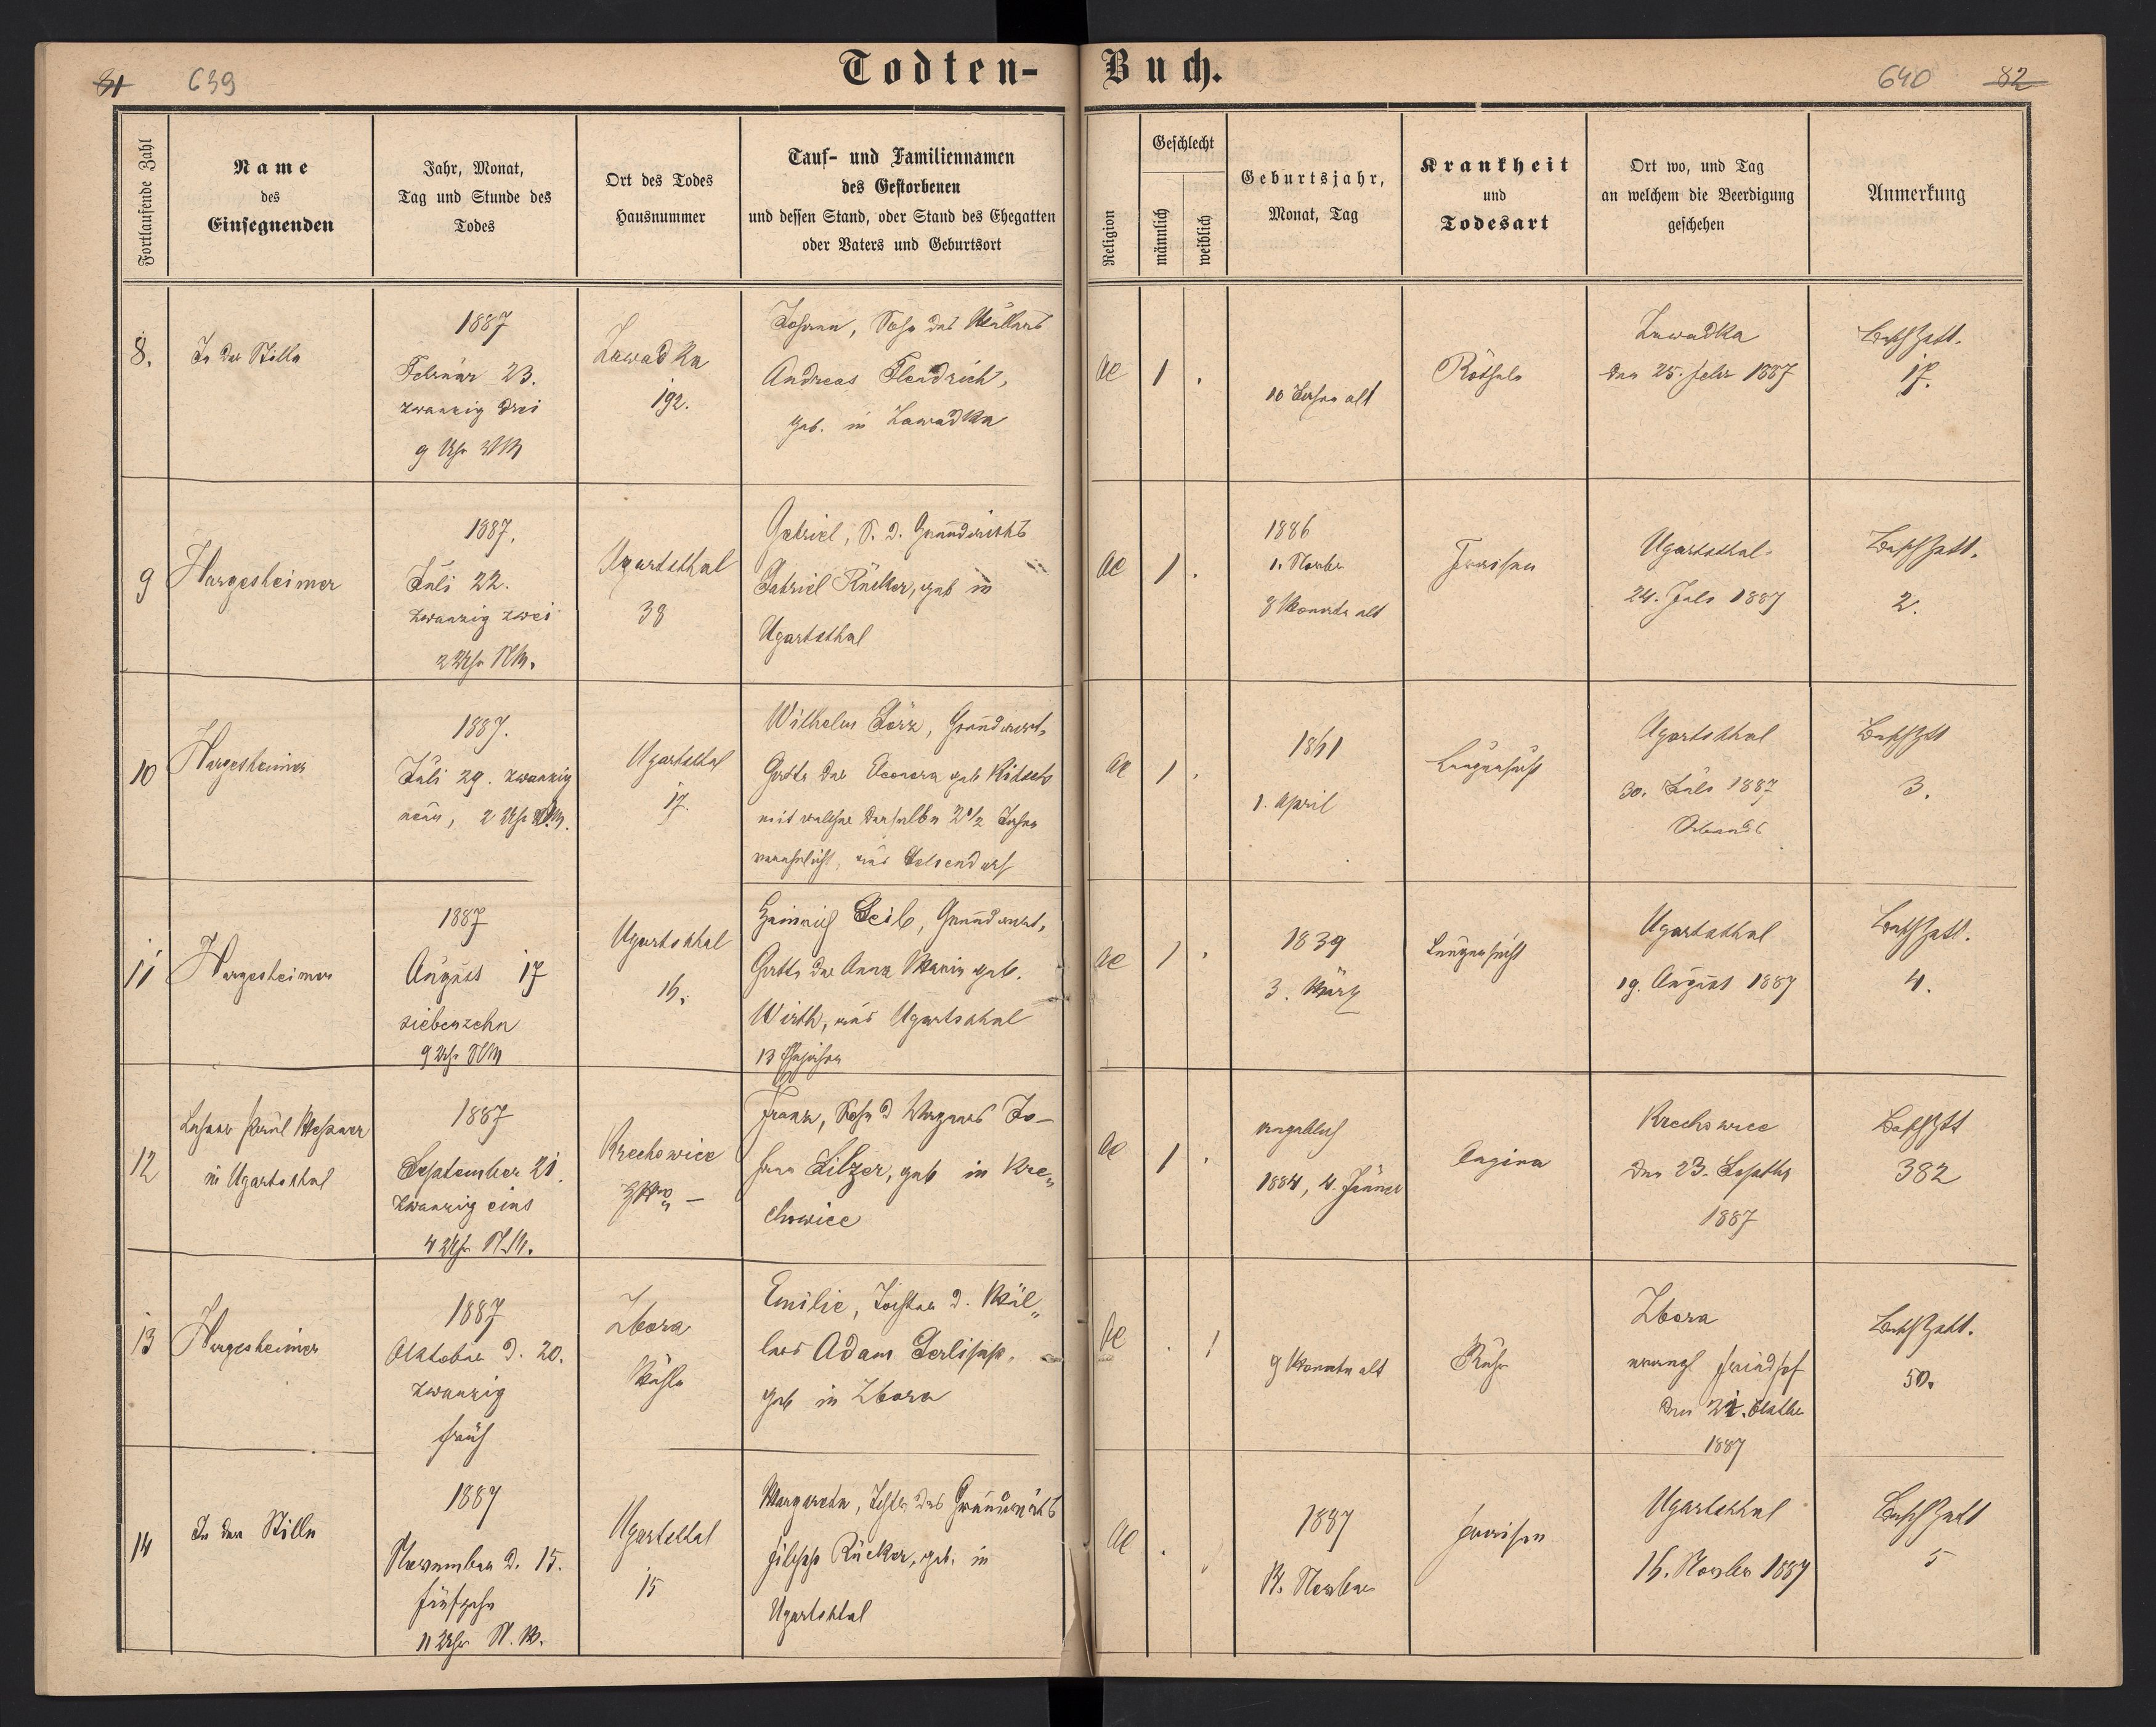 81 639
Todten-Buch.
640 82
Fortlaufende Zahl
Name
des
Einsegnenden
Jahr, Monat,
Tag und Stunde des
Todes
Ort des Todes
Hausnummer
Tauf- und Familiennamen
des Gestorbenen
und dessen Stand, oder Stand des Ehegatten
oder Vaters und Geburtsort
Religion
Geschlecht
männlich
weiblich
Geburtsjahr,
Monat, Tag
Krankheit
und
Todesart
Ort wo, und Tag
an welchem die Beerdigung
geschehen
Anmerkung
8.
In der Stille
1887
Februar 23.
zwanzig drei
9 Uhr
Zawadka
192.
Johann, Sohn des Müllers
Andreas Flendrich,
geb. in Zawadka
AC
1
.
10 Jahre alt
Rötheln
Zawadka
den 25. Febr 1887
17.
9
Hargesheimer
1887.
Juli 22.
zwanzig zwei
2 Uhr NM.
Ugartsthal
38
Gabriel, S. d. Grundwirths
Gabriel Rücker, geb in
Ugartsthal
AC
1
.
1886
1. Novbr
8 Monate alt
Fraisen
Ugartsthal
24. Juli 1887
2.
10
Hargesheimer
1887.
Juli 29. zwanzig
neun, 2 Uhr
Ugartsthal
17.
Wilhelm Görz, Grundwirt,
Gatte der Eleonora geb
mit welcher derselbe 2 1/2 Jahre
verehelicht, aus
AC
1
.
1861
1. April
Lungensucht
Ugartsthal
30. Juli 1887
Abends
3.
11
Hargesheimer
1887
August 17
siebenzehn
9 Uhr
Ugartsthal
16.
Heinrich Leib, Grundwirt,
Gatte der Anna Maria geb.
Wirth, aus Ugartsthal
13 Ehejahre
AC
1
.
1839
3. März
Lungensucht
Ugartsthal
19. August 1887
4.
12
Lehrer Paul Messner
in Ugartsthal
1887
September 21.
zwanzig eins
4 Uhr N.M.
Krechowice
Franz, Sohn d Wagners Jo-
hann Silzer, geb in Kre„
chowice
AC
1
.
angeblich
1884, 4. Jänner
Angina
Krechowice
den 23. Septbr
1887
382
13
Hargesheimer
1887
Oktober d. 20.
zwanzig
früh
Zbora
Mühle
Emilie, Tochter d. Mül„
lers Adam
geb in Zbora
AC
.
1
9 Monate alt
Ruhr
Zbora
evangl Friedhof
den 22. Oktbr
1887
50.
14
In der Stille
1887
November d. 15.
fünfzehn
11 Uhr N. M.
Ugartsthal
15
Margaretha, Tochter des Grundwirths
Rücker, geb. in
Ugartsthal
AC
.
1887
14. Novber
Fraisen
Ugartsthal
16. Novbr 1887
5